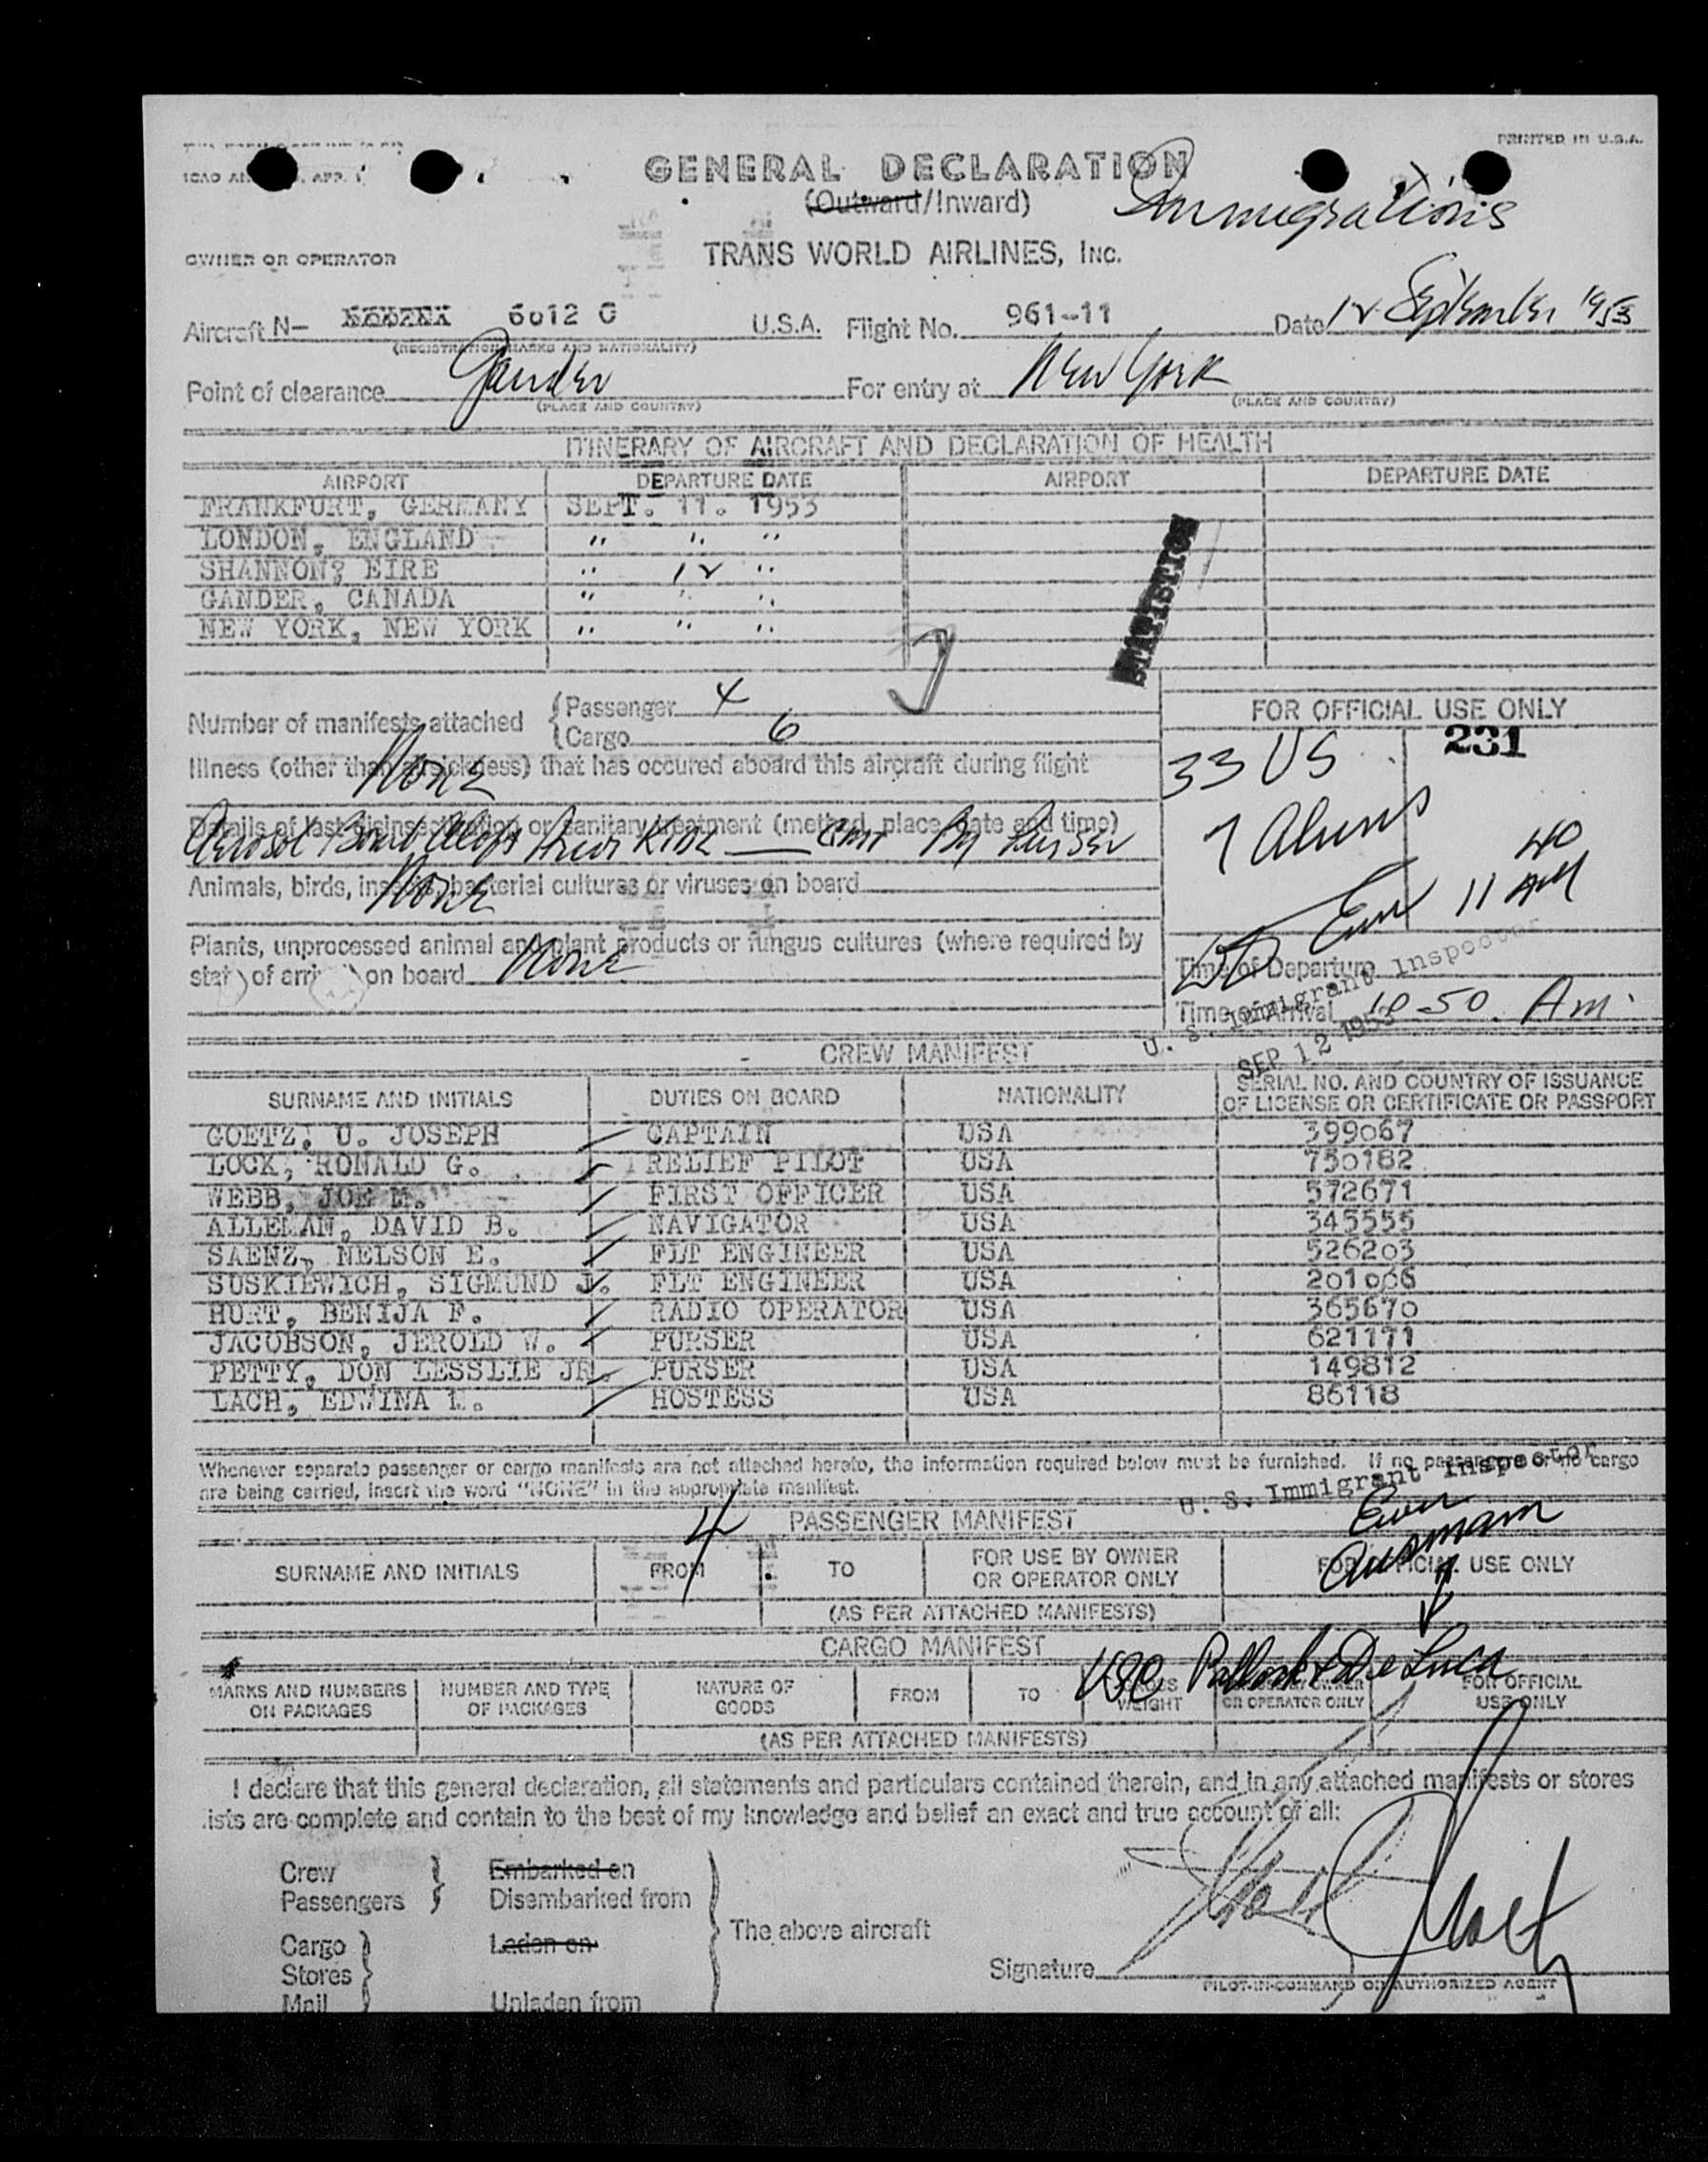 PRINTED IN U.S.A.
GENERAL DECLARATION
(Outward/Inward)
Immigrations
OWNER OR OPERATOR
TRANS WORLD AIRLINES, INC.
Aircraft N- 6012 C U.S.A. Flight No. 961-11 Date 12 September 1953
(REGISTRATION MARKS AND NATIONALITY)
Point of clearance Gander For entry at New York
(PLACE AND COUNTRY) (PLACE AND COUNTRY)
ITINERARY OF AIRCRAFT AND DECLARATION OF HEALTH
AIRPORT DEPARTURE DATE AIRPORT DEPARTURE DATE
FRANKFURT, GERMANY SEPT. 11. 1953
LONDON, ENGLAND " " "
SHANNON, EIRE " 12 "
GANDER, CANADA " " "
NEW YORK, NEW YORK " " "
STATISTICS
Number of manifests attached Passenger 4
Cargo 6
FOR OFFICIAL USE ONLY
231
33 US
7 Aliens
40
11 AM
Illness (other than airsickness) that has occured aboard this aircraft during flight
None
Details of last disinsectization or sanitary treatment (method, place, date and time)
Aerosol Bomb GMT By Purser
Animals, birds, insects, bacterial cultures or viruses on board
None
Plants, unprocessed animal and plant products or fungus cultures (where required by
state of arrival) on board None
Time of Departure
Time of Arrival 10-50. Am.
U. S. Immigrant Inspector
SEP 12 1953
CREW MANIFEST
SURNAME AND INITIALS DUTIES ON BOARD NATIONALITY SERIAL NO. AND COUNTRY OF ISSUANCE OF LICENSE OR CERTIFICATE OR PASSPORT
GOETZ, U. JOSEPH CAPTAIN USA 399067
LOCK, RONALD G. RELIEF PILOT USA 750182
WEBB, JOE M. FIRST OFFICER USA 572671
ALLEMAN, DAVID B. NAVIGATOR USA 345555
SAENZ, NELSON E. FLT ENGINEER USA 526203
SUSKIEWICH, SIGMUND J. FLT ENGINEER USA 201066
HURT, BENIJA F. RADIO OPERATOR USA 365670
JACOBSON, JEROLD W. PURSER USA 621171
PETTY, DON LESSLIE JR. PURSER USA 149812
LACH, EDWINA M. HOSTESS USA 86118
Whenever separate passenger or cargo manifests are not attached hereto, the information required below must be furnished. If no passengers or no cargo
are being carried, insert the word "NONE" in the appropriate manifest.
U. S. Immigrant Inspector
4
PASSENGER MANIFEST
SURNAME AND INITIALS FROM TO FOR USE BY OWNER OR OPERATOR ONLY FOR OFFICIAL USE ONLY
(AS PER ATTACHED MANIFESTS)
CARGO MANIFEST
Pollock & De Luca
MARKS AND NUMBERS ON PACKAGES NUMBER AND TYPE OF PACKAGES NATURE OF GOODS FROM TO GROSS WEIGHT OR OPERATOR ONLY FOR OFFICIAL USE ONLY
(AS PER ATTACHED MANIFESTS)
I declare that this general declaration, all statements and particulars contained therein, and in any attached manifests or stores
lists are complete and contain to the best of my knowledge and belief an exact and true account of all:
Crew Embarked on
Passengers Disembarked from
The above aircraft
Cargo Laden on
Stores
Mail Unladen from
Signature
PILOT-IN-COMMAND OR AUTHORIZED AGENT